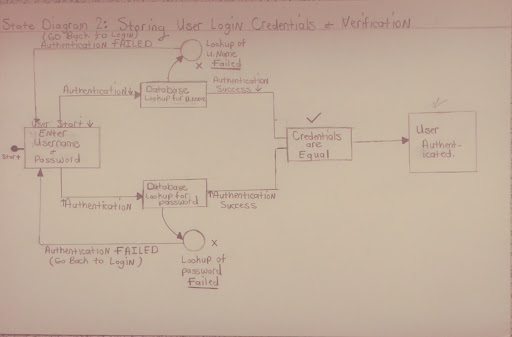 State Diagram 2: Storing User Login Credentials & Verification
(Go Back to Login)
Authentication FAILED
Lookup of
U.Name
Failed
x
Authentication ↓
Database
Lookup for U.name
Authentication
Success ↓
User Start ↓
Enter
Username
+
Password
Start
✓
Credentials
are
Equal
✓
User
Authent-
icated.
↑Authentication
Database
Lookup for
password
↑Authentication
Success
Authentication FAILED
(Go Back to Login)
x
Lookup of
password
Failed